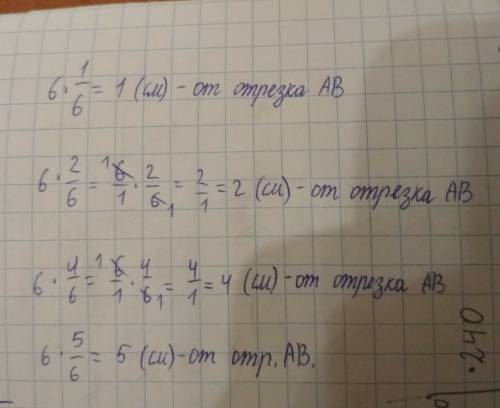 6 · 1/6 = 1 (см) - от отрезка АВ
6 · 2/6 = 6/1 · 2/6 = 2/1 = 2 (см) - от отрезка АВ
6 · 4/6 = 6/1 · 4/6 = 4/1 = 4 (см) - от отрезка АВ
6 · 5/6 = 5 (см) - от отр. АВ.